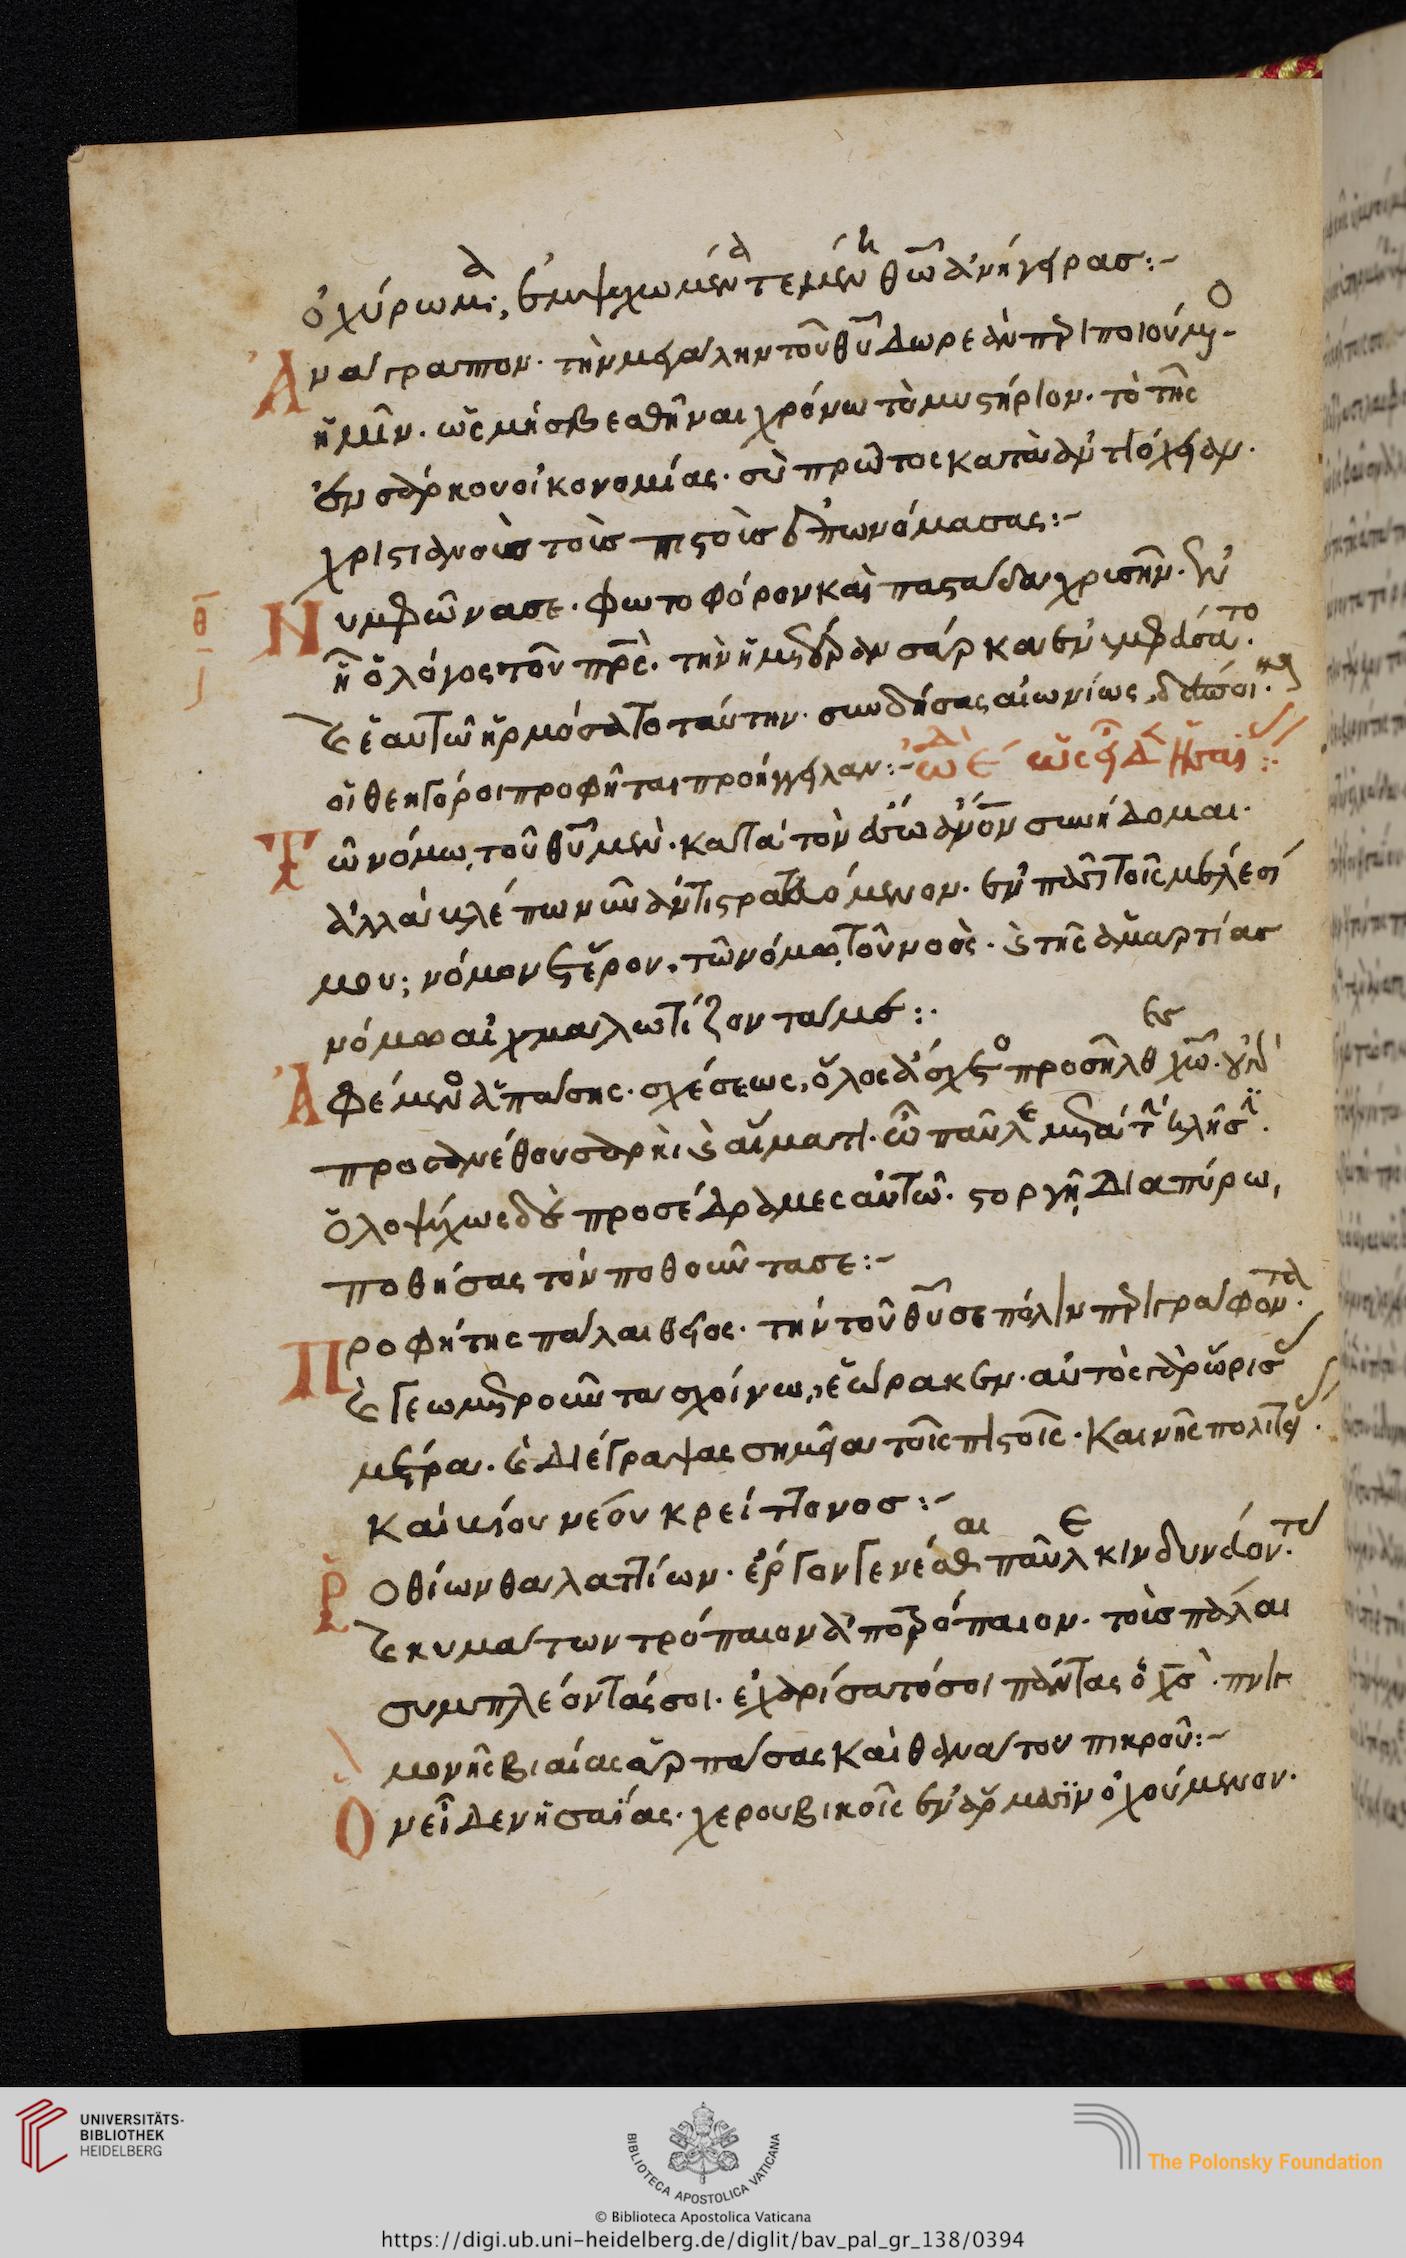 ὀχύρωμα, ἐμψύχωμένα τεμένη θῶ ἀνήγειρας:~
Ἀνάγραπτον· τὴν μεγάλην τοῦ θυ δωρεὰν περιποιούμενο
ἡμῖν· ὡς μὴ σβεσθῆναι χρόνω τὸ μυστήριον· τὸ τῆς
ἐνσάρκου οἰκονομίας· σὺ πρῶτος κατὰ ἀντιόχειαν·
χριστιανοὺς τοὺς πιστοὺς ἐπωνόμασας:~
θ
Νυμφῶνα σε· φωτοφόρον καὶ παστάδα χρισ
ὁ λόγος τοῦ πρς· τὴν ἡμετέραν σάρκα
ἑαυτῶ ἡρμόσατο ταύτην· συνδήσας αἰωνίως,
οἱ θεηγόροι προφῆται προήγγειλαν:~ ὠδ ε
Τῶ νόμω, τοῦ θυ μὲν· κατὰ τὸν ἔσω ἀνον συνήδομαι·
ἀλλὰ βλέπων νῦν ἀντιστρατευόμενον· ἐν πᾶσι τοῖς μέλεσί
μου; νόμον ἕτερον· τῶ νόμω, τοῦ νοὸς· καὶ τῆς ἁμαρτίας
νόμω αἰχμαλωτίζοντα με:·
Ἀφέμενος ἁπάσης· σχέσεως, ὅλος ἄσχετος προσῆλθες χῶ·
προσανέθου σαρκὶ καὶ αἵματι· ὦ παῦλε μετὰ τὴν κλῆσιν·
ὁλοψύχως δὲ προσέδραμες αὐτῶ· στοργῆ, διαπύρω,
ποθήσας τὸν ποθοῦντα σε:~
Προφήτης πάλαι θεῖος· τὴν τοῦ θυ σε πόλιν περιγράφοντα·
καὶ γεωμετροῦντα σχοίνω, ἑώρακεν· αὐτὸς γὰρ ὥρισας
μέτρα· καὶ διέγραψας σημεῖα τοῖς πιστοῖς· καινῆς πολιτείας·
καὶ βίου νέου κρείττονος:~
Ῥοθίων θαλαττίων· ἔργον γενέσθαι παῦλε κινδυνεύοντα·
καὶ κυμάτων τρόπαιον ἀποτρόπαιον· τοὺς πάλαι
συμπλέοντάς σοι· ἐχαρίσατό σοι πάντας ὁ χς· πνιγ
μονῆς βιαίας ἁρπάσας καὶ θανάτου πικροῦ:~
Ὃν εἶδεν ἡσαΐας· χερουβικοῖς ἐν ἅρμασιν ὀχούμενον·
UNIVERSITÄTS-
BIBLIOTHEK
HEIDELBERG
BIBLIOTECA APOSTOLICA VATICANA
The Polonsky Foundation
© Biblioteca Apostolica Vaticana
https://digi.ub.uni-heidelberg.de/diglit/bav_pal_gr_138/0394